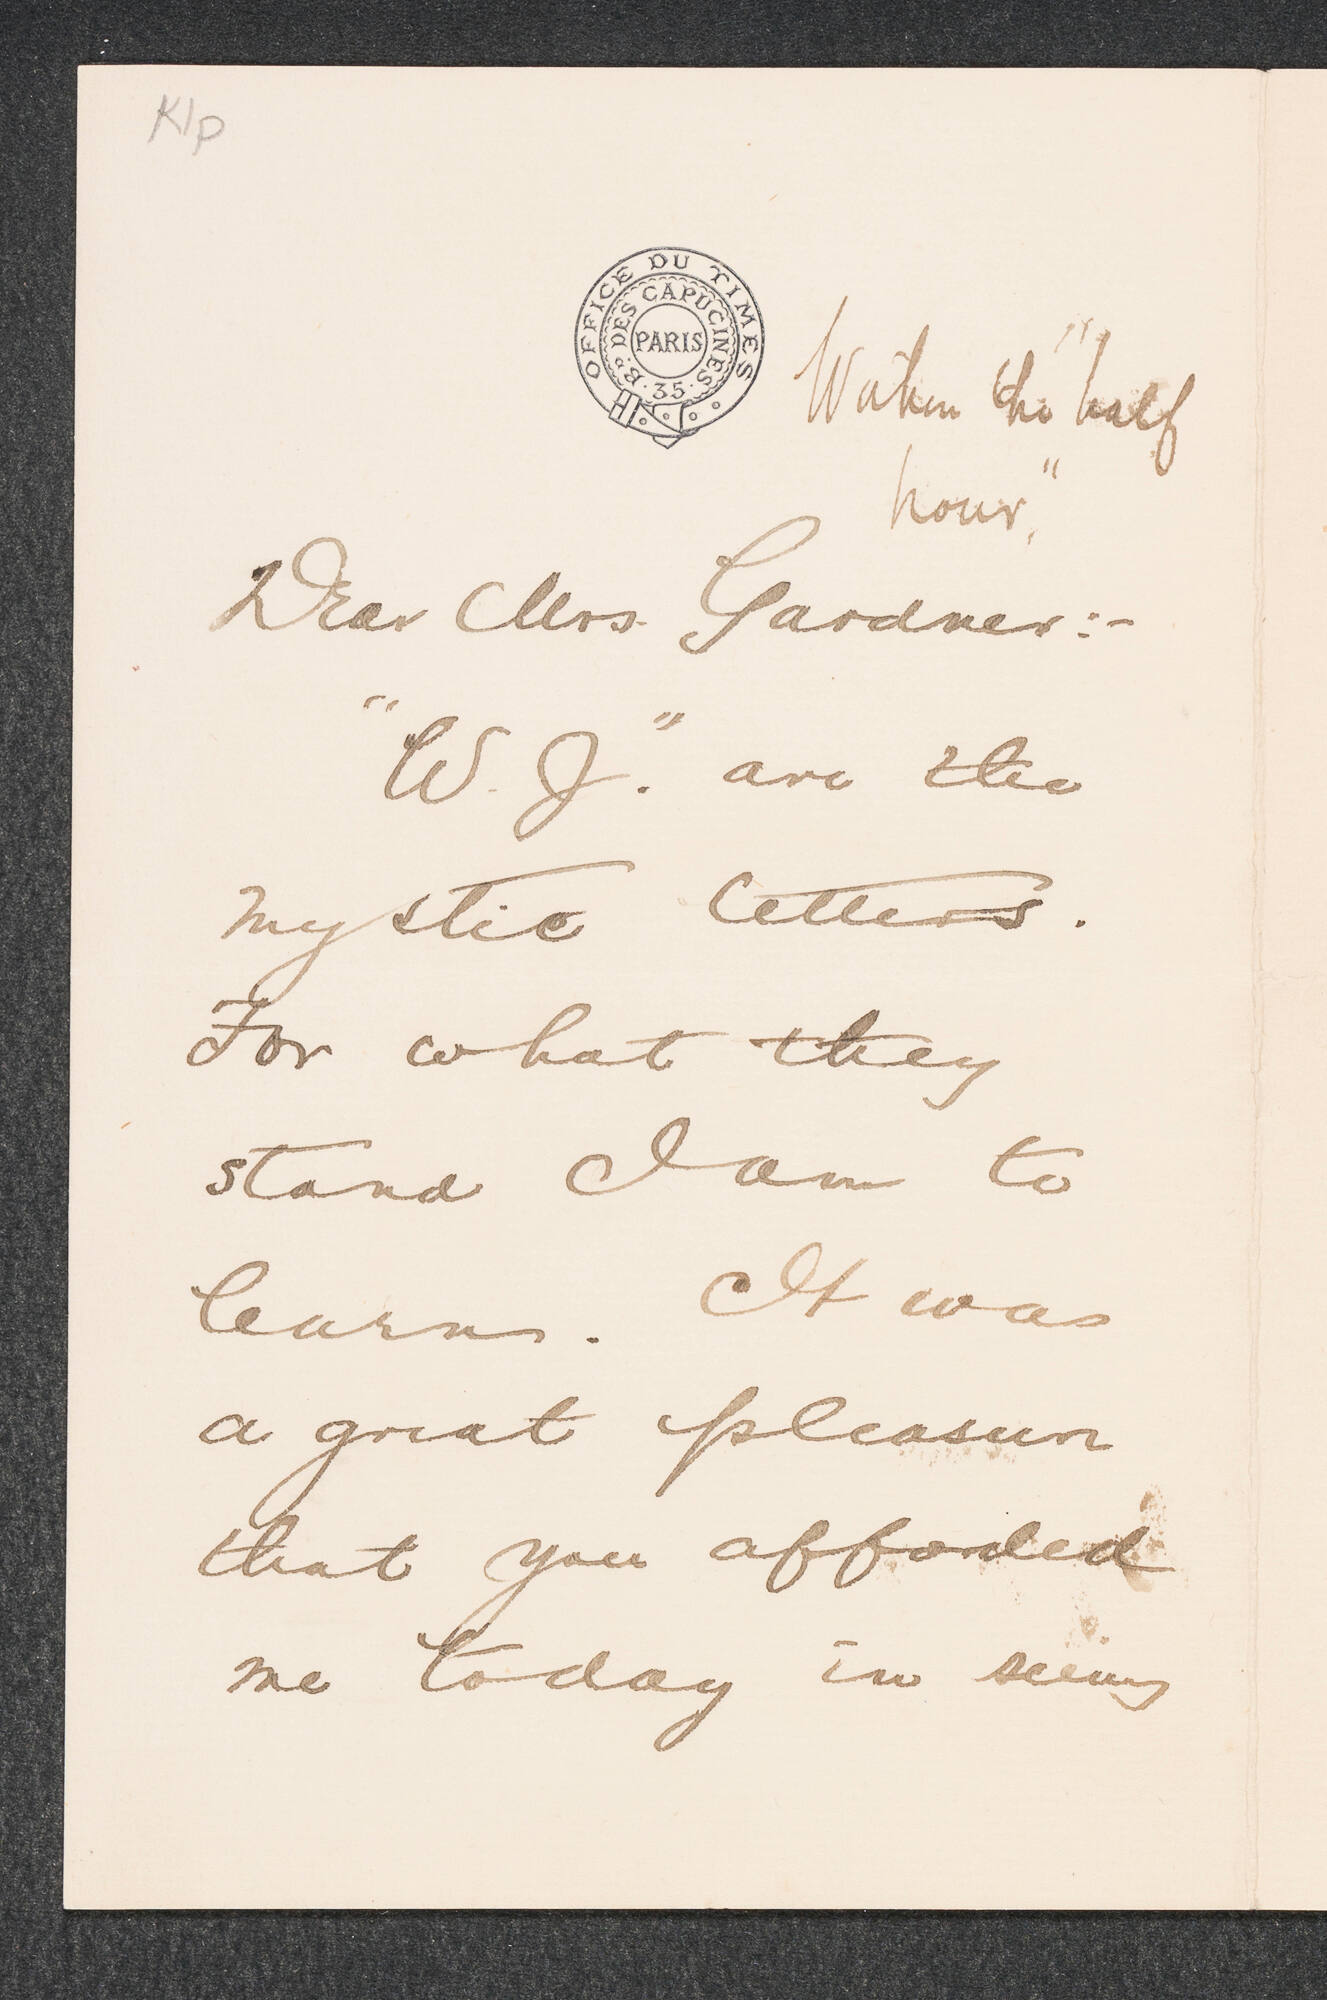 Klp
OFFICE DU TIMES
Bᴰ DES CAPUCINES
35
PARIS
Within the "half
hour,"
Dear Mrs. Gardner:-
"W. J." are the
mystic letters.
For what they
stand I am to
learn. It was
a great pleasure
that you afforded
me today in seeing